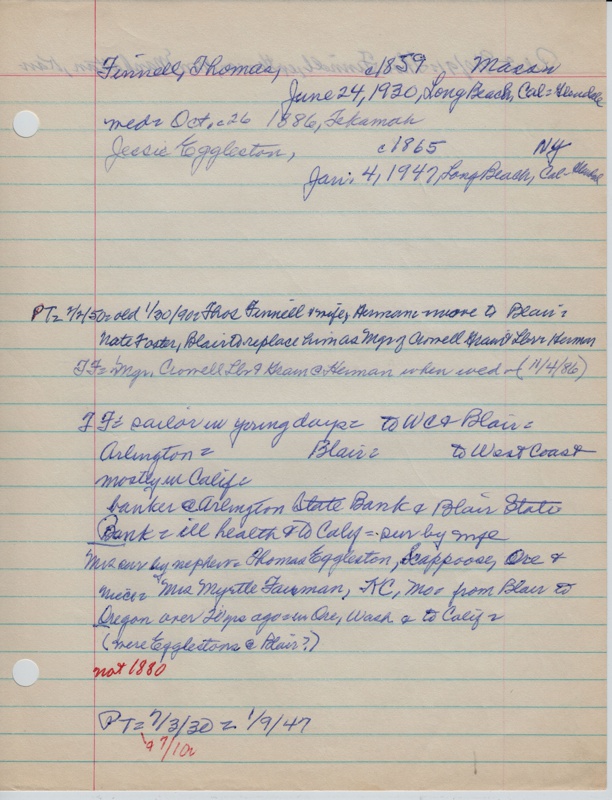 Finnell, Thomas, c1859 Macon
June 24, 1930, Long Beach, Cal =
med = Oct, c26 1886, Tekamah
Jessie Eggleston, c1865 NY
Jan. 4, 1947, Long Beach, Cal -
PT = 7/2/50 = old 1/30/90 = Thos Finnell & wife, Herman = move to Blair =
Nate Foster, Blair to replace him as Mgr of Crowell Grain & Lbr = Herman
TF = Mgr. Crowell Lbr & Grain @ Herman when wed = (11/4/86)
TF = sailor in young days = to WC & Blair =
Arlington = Blair = to West Coast
mostly in Calif =
banker @ Arlington State Bank & Blair State
Bank = ill health & to Calif = sur by wife
Mrs sur by nephew = Thomas Eggleston, Scappoose, Ore &
niece = Mrs Myrtle, KC, Mo = from Blair to
Oregon over 20 yrs ago = in Ore, Wash & to Calif =
(were Egglestons @ Blair?)
not 1880
PT = 7/3/30 = 1/9/47
& 7/10